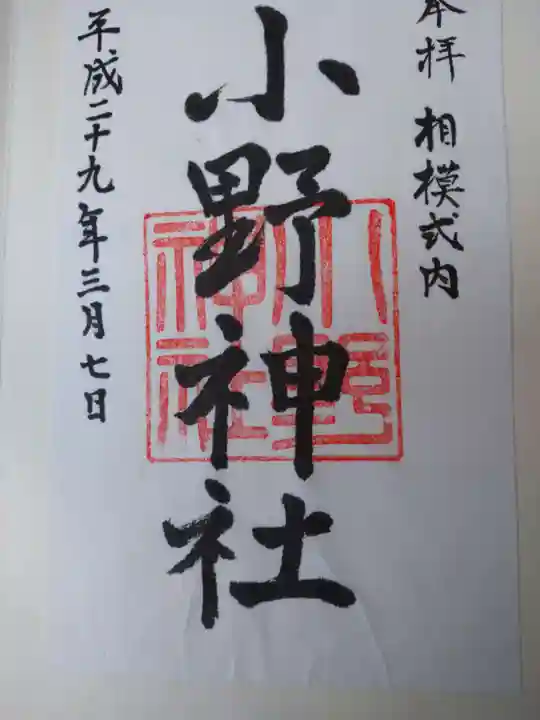 奉拝 相模式内
小野神社
小野
神社
平成二十九年三月七日